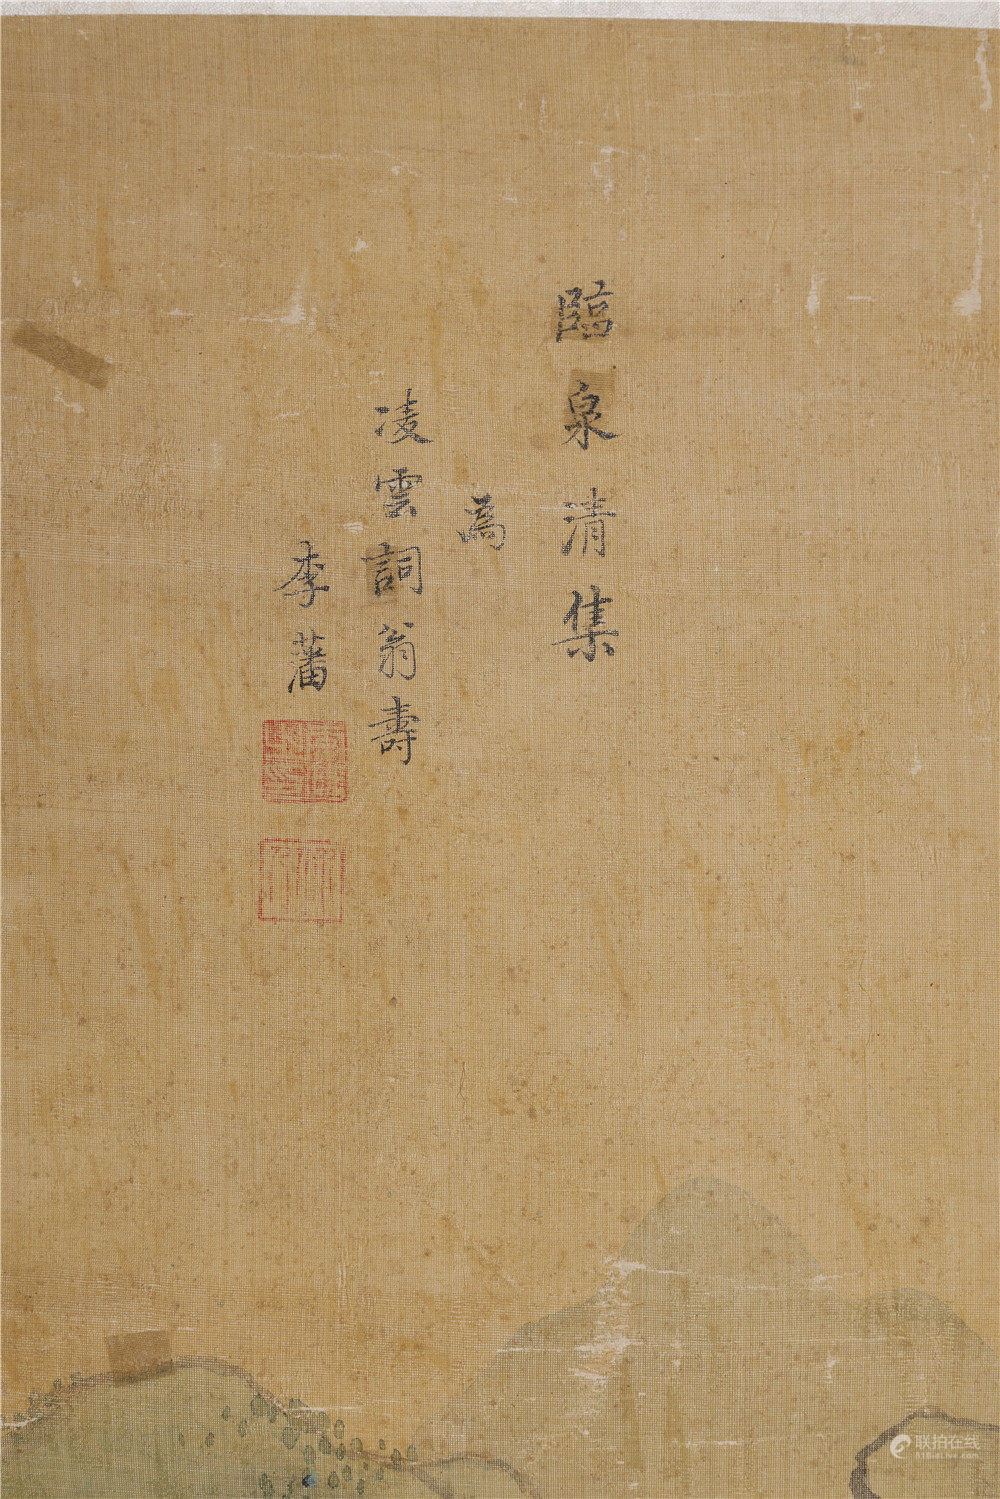 臨泉清集
為
凌雲詞翁壽
李藩
联拍在线